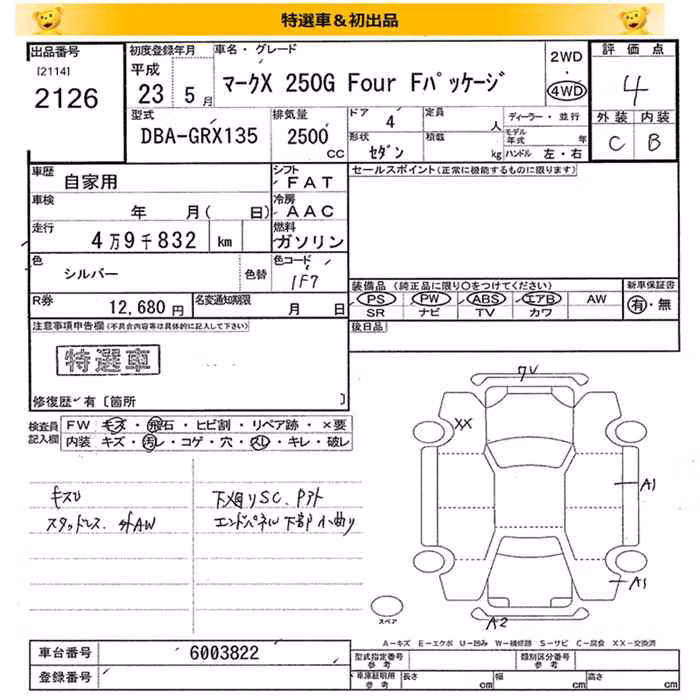 特選車&初出品
出品番号
[2114]
2126
初度登録年月
平成
23 5月
車名・グレード
マークX 250G Four Fパッケージ
2WD
・
4WD
評価点
4
外装 内装
C B
型式
DBA-GRX135
排気量
2500
CC
ドア
4
定員
人
形状
セダン
積載
kg
ディーラー・並行
モデル年式 年
ハンドル 左・右
車歴
自家用
シフト
FAT
車検
年 月( 日)
冷房
AAC
走行
4万9千832 km
燃料
ガソリン
色
シルバー
色替
色コード
1F7
R券
12,680円
名変通知期限
月 日
セールスポイント(正常に機能するものに限ります)
装備品 (純正品に限り○をつけてください)
PS PW ABS エアB AW
SR ナビ TV カワ
新車保証書
有・無
後日品
注意事項申告欄(不具合内容等は具体的に記入して下さい)
特選車
修復歴・有〔箇所 〕
検査員記入欄
FW キズ・飛石・ヒビ割・リペア跡・×要
内装 キズ・汚レ・コゲ・穴・スレ・キレ・破レ
キズU
スタッドレス. 外AW
下廻りSC. Pアト
エンドパネル下部小曲り
7U
XX
A1
A1
A2
スペア
A-キズ E-エクボ U-凹み W-補修跡 S-サビ C-腐食 XX-交換済
車台番号
6003822
登録番号
型式指定番号
参考
類別区分番号
参考
車庫証明用
参考
長さ cm 幅 cm 高さ cm